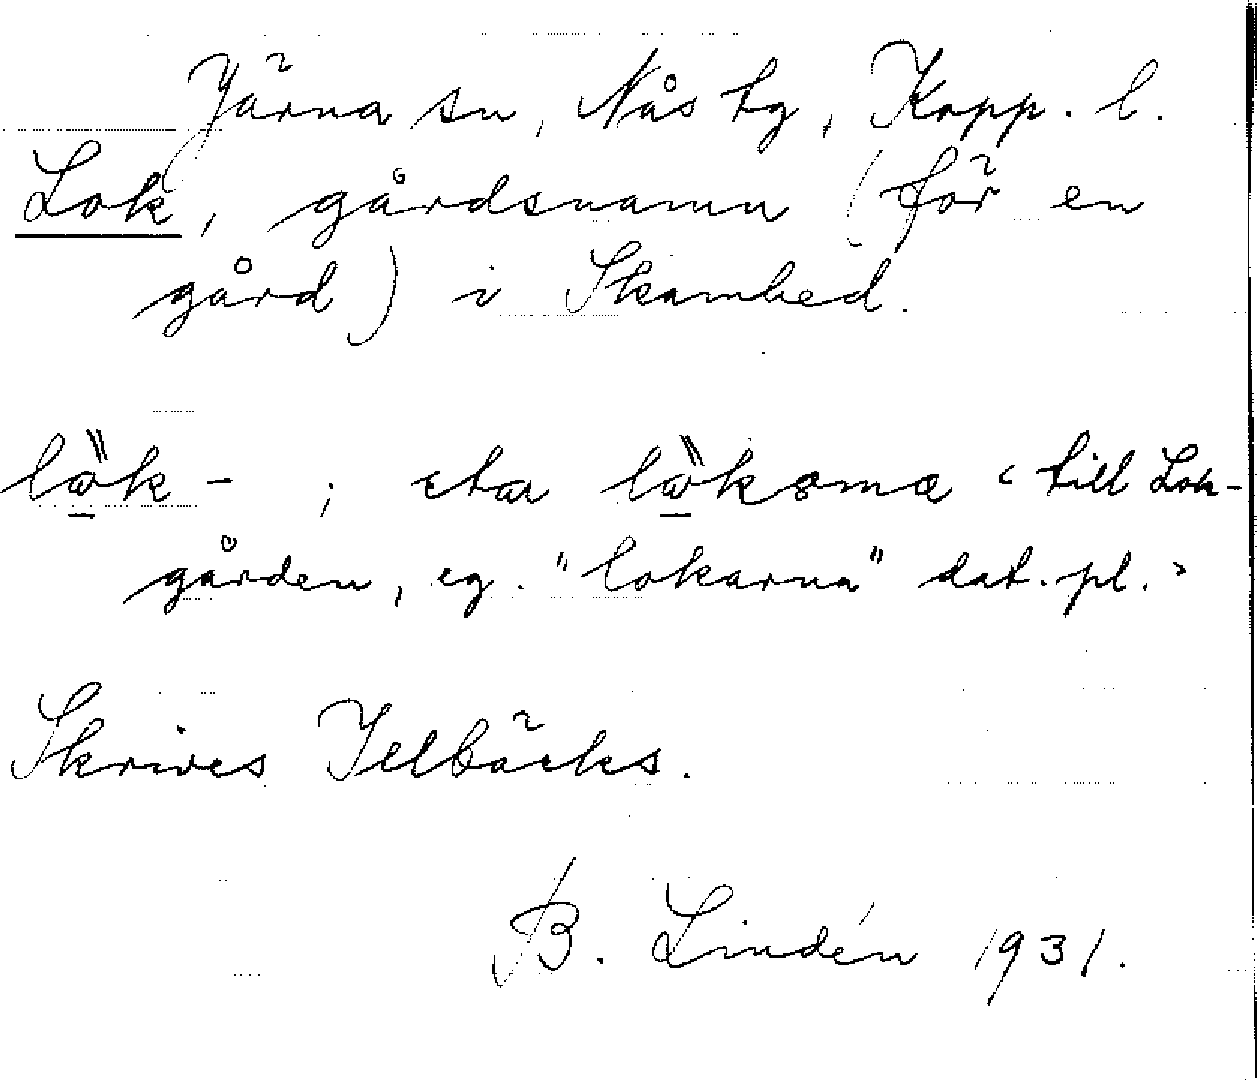 Järna sn, Nås tg, Kopp. l.
Lok, gårdsnamn (för en
gård) i Skamhed.
till Lok-
gården, eg. "lokarna" dat. pl. >
Skrives Jelbäcks.
B. Lindén 1931.